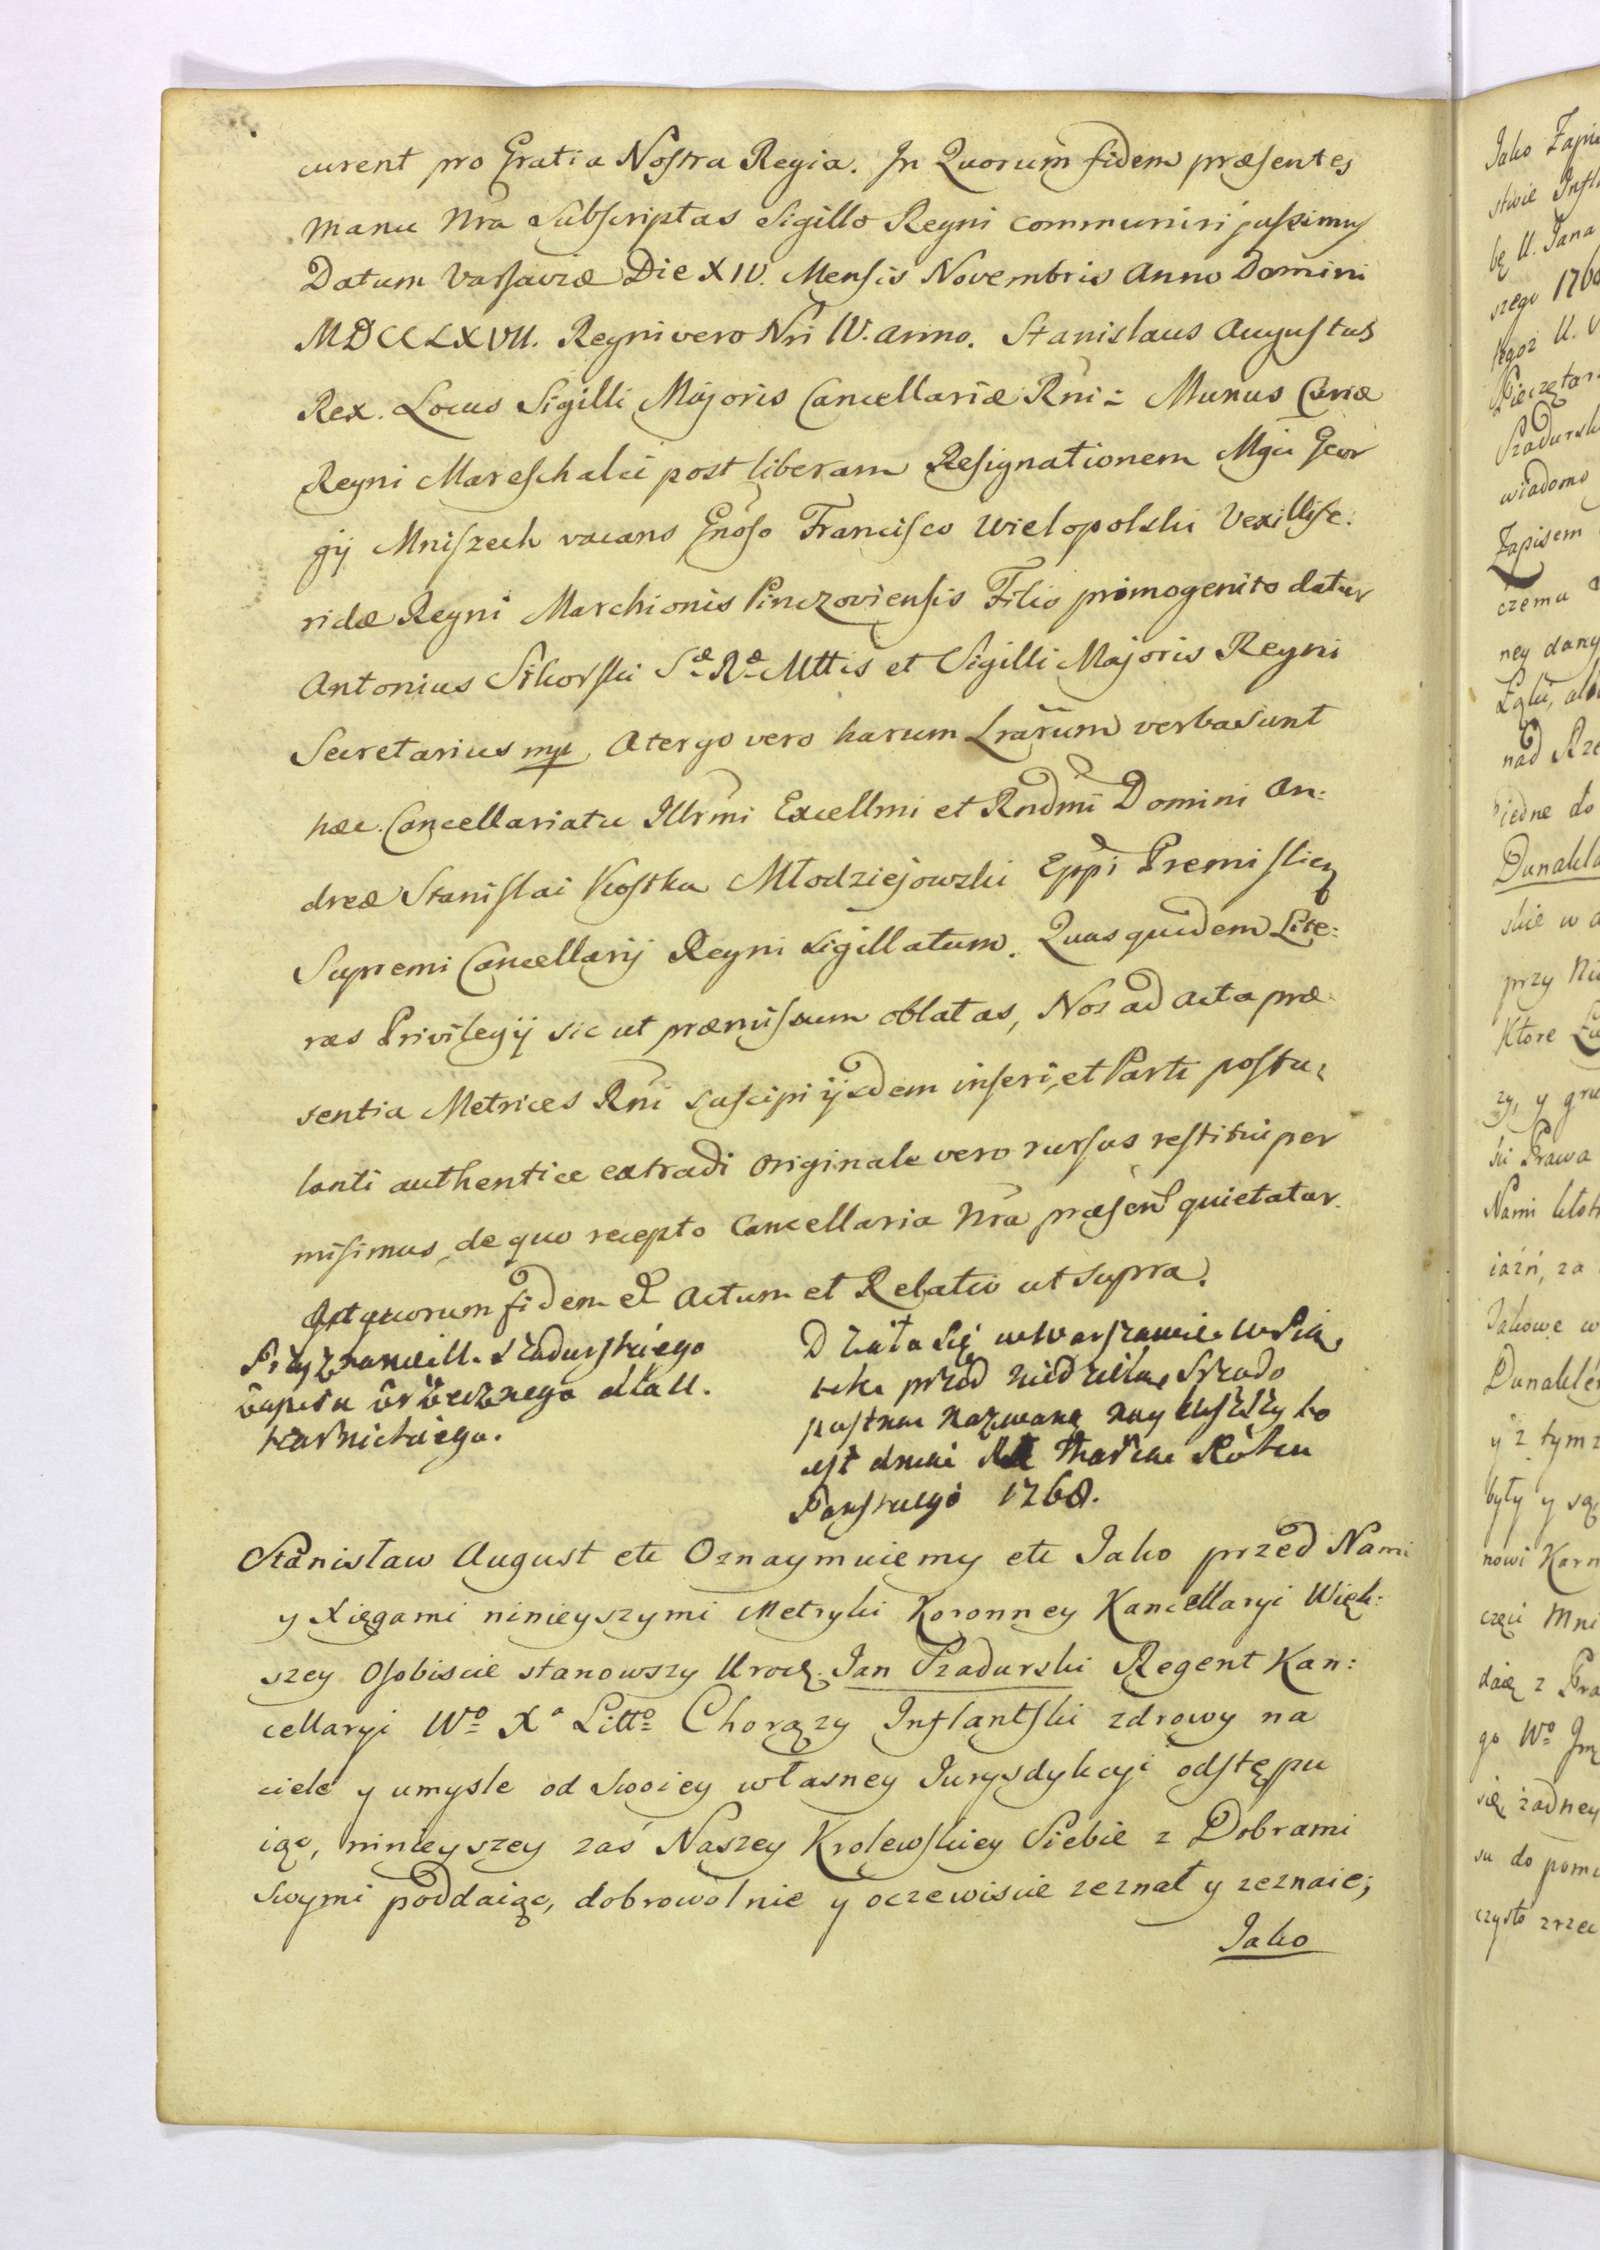 curent pro Gratia Nostra Regia. In Quorum fidem præsentes
manu Nra Subscriptas Sigillo Regni communiri jussimus
Datum Varsaviæ Die XIV. Mensis Novembris Anno Domini
MDCCLXVII. Regni vero Nri IV. anno. Stanislaus Augustus
Rex. Locus Sigilli Majoris Cancellariæ Rni = Munus Curiæ
Regni Mareschalci post liberam Resignationem Mgci Geor
gij Mniszech vacans Gnoso Francisco Wielopolski Vexillife:
ridæ Regni Marchionis Pinczoviensis Filio primogenito datur
Antonius Sikorski Sæ Ræ Mttis et Sigilli Majoris Regni
Secretarius mp A tergo vero harum Lrarum verba sunt
hæc. Cancellariatu Illrmi Excellmi et Rndmi Domini An:
dreæ Stanislai Kostka Młodziejowski Eppi Premislien
Supremi Cancellarij Regni Sigillatum. Quas quidem Lite:
ras Privilegij sic ut præmissum oblatas, Nos ad Acta præ
sentia Metrices Rni suscipi ijsdem inseri, et Parti postu:
lanti authentice extradi Originale vero rursus restitui per
misimus, de quo recepto Cancellaria Nra præsen quietatur.
quorum fidem et Actum et Relatio ut Supra.
Przyznanie U. Szadurskiego
zapisu wiecznego dla U.
Karnickiego.
Działo się w Warszawie w Pią
tek przed niedzielą Srzodo
postną nazwaną naybliższy to
jest dnia Marca Roku
Panskiego 1768.
Stanisław August etc Oznaymuiemy etc Jako przed Nami
y Xięgami ninieyszymi Metryki Koronney Kancellaryi Więk:
szey Osobiscie stanowszy Urodz. Jan Szadurski Regent Kan:
cellaryi Wo Xa Litto Chorąży Inflantski zdrowy na
ciele y umysle od Swoiey własney Jurysdykcyi odstępu
iąc, ninieyszey zaś Naszey Krolewskiey Siebie z Dobrami
Swymi poddaiąc, dobrowolnie y oczewiscie zeznał y zeznaie;
Jako